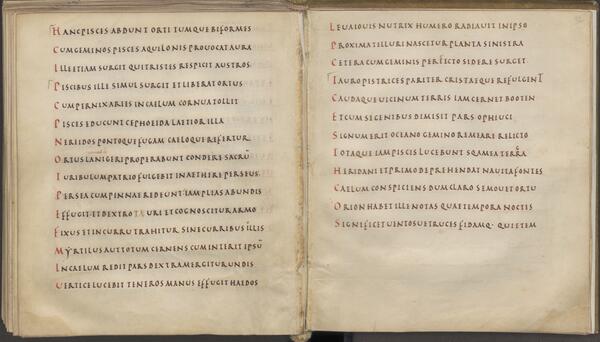 HANC PISCES ABDUNT ORTI TUMQUE BIFORMES
CUM GEMINOS PISCES AQUILONIS PROUOCAT AURA
ILLE ETIAM SURGIT QUI TRISTES RESPICIT AUSTROS
PISCIBUS ILLE SIMUL SURGIT ET LIBERAT ORTUS
CUM PERNIX ARIES IN CAELUM CORNUA TOLLIT
PISCES EDUCUNT CEPHOEIDA LAETIOR ILLA
NEREIDOS PONTOQUE FUGAM CAELOQUE REFERTUR
ORTUS LANIGERI PROPERABUNT CONDERE SACRŪ
TURIBULUM PATRIO FULGEBIT IN AETHERE PERSEUS
PERSEA CUM PINNAE REDEUNT IAM PLIAS ABUNDIS
EFFUGIT ET DEXTRO TAURI ET COGNOSCITUR ARMO
FIXUS ET IN CURRU TRAHITUR SINE CURRIBUS ILLIS
MYRTILUS AUT TOTUM CERNENS CUM INTERIT IPSŪ
IN CAELUM REDIT PARS DEXTRA MERGITUR UNDIS
UERTICE LUCEBIT TENEROS MANUS EFFUGIT HAEDOS
LEUA IOUIS NUTRIX HUMERO RADIAUIT IN IPSO
PROXIMA TELLURI NASCETUR PLANTA SINISTRA
CETERA CUM GEMINIS PERFECTO SIDERE SURGET
TAURO PISTRICES PARITER CRISTATQUE REFULGENT
CAUDAQUE UICINUM TERRIS IAM CERNET BOOTEN
ET CUM SE GENIBUS DIMISIT PARS OPHIUCI
SIGNUM ERIT OCEANO GEMINO REMEARE RELICTO
TOTAQUE IAM PISCIS LUCEBUNT SQAMEA TERGA
HERIDANI ET PRIMO DEPREHENDAT NAUITA FONTES
CAELUM CONSPICIENS DUM CLARO SE MOUET ORTU
ORION HABET ILLE NOTAS QUAE TEMPORA NOCTIS
SIGNIFICET UENTOSUE TRUCES FIDAMQ· QUIETEM